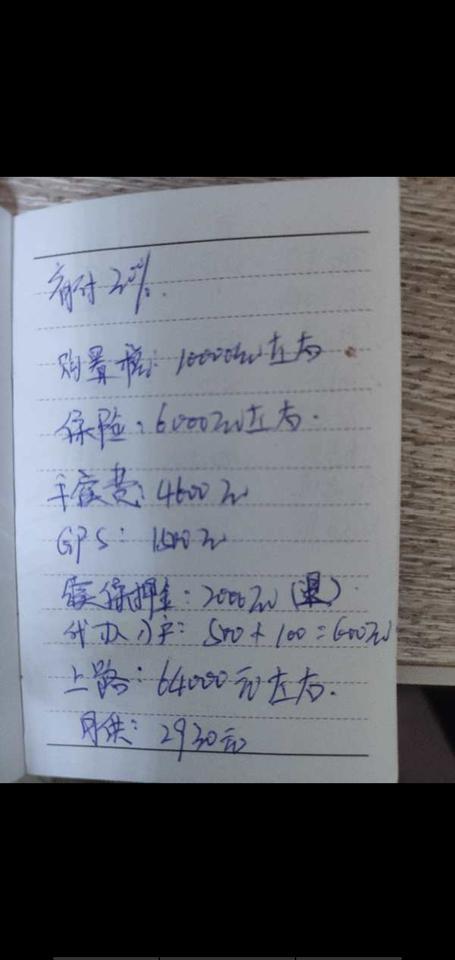 首付20%.
购置税:10000元左右
保险:6000元左右.
手续费:4600元
GPS:1500元
续保押金:2000元(退)
代办入户:500+100=600元
上路:64000元左右.
月供:2930元